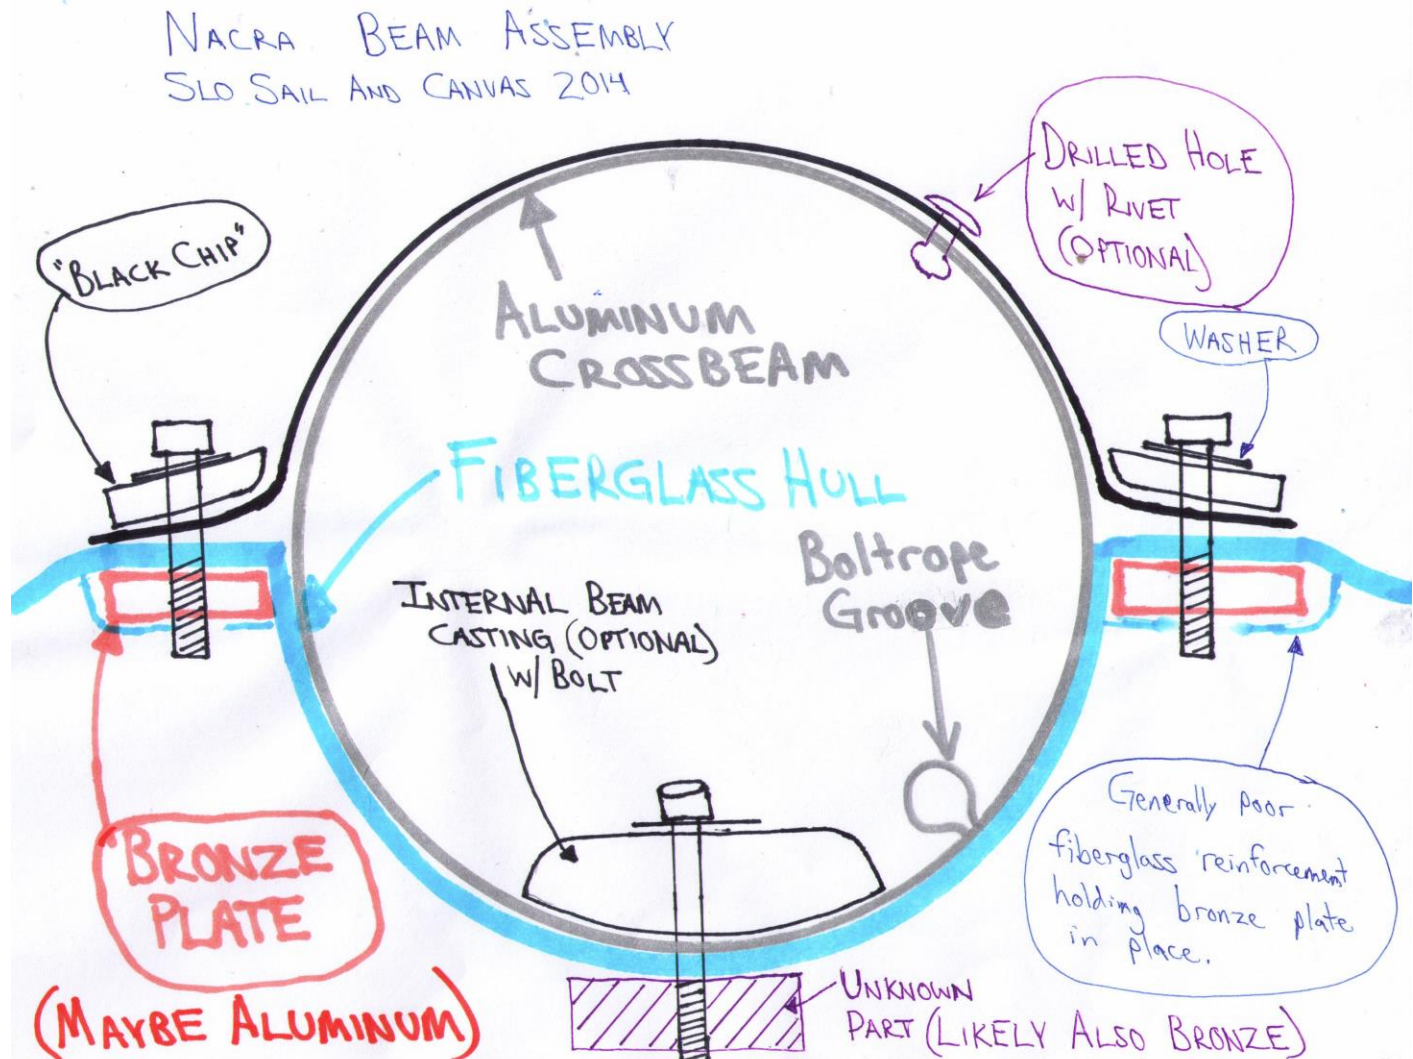 NACRA BEAM ASSEMBLY
SLO SAIL AND CANVAS 2014
DRILLED HOLE
W/ RIVET
(OPTIONAL)
"BLACK CHIP"
ALUMINUM
CROSSBEAM
WASHER
FIBERGLASS HULL
Boltrope
Groove
INTERNAL BEAM
CASTING (OPTIONAL)
W/ BOLT
BRONZE
PLATE
(MAYBE ALUMINUM)
Generally poor
fiberglass reinforcement
holding bronze plate
in place.
UNKNOWN
PART (LIKELY ALSO BRONZE)